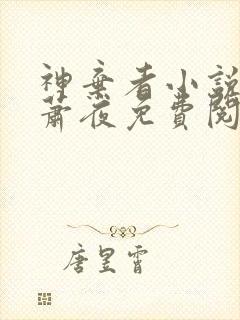 神棄者小說
蕭夜免費閱
唐昱霄